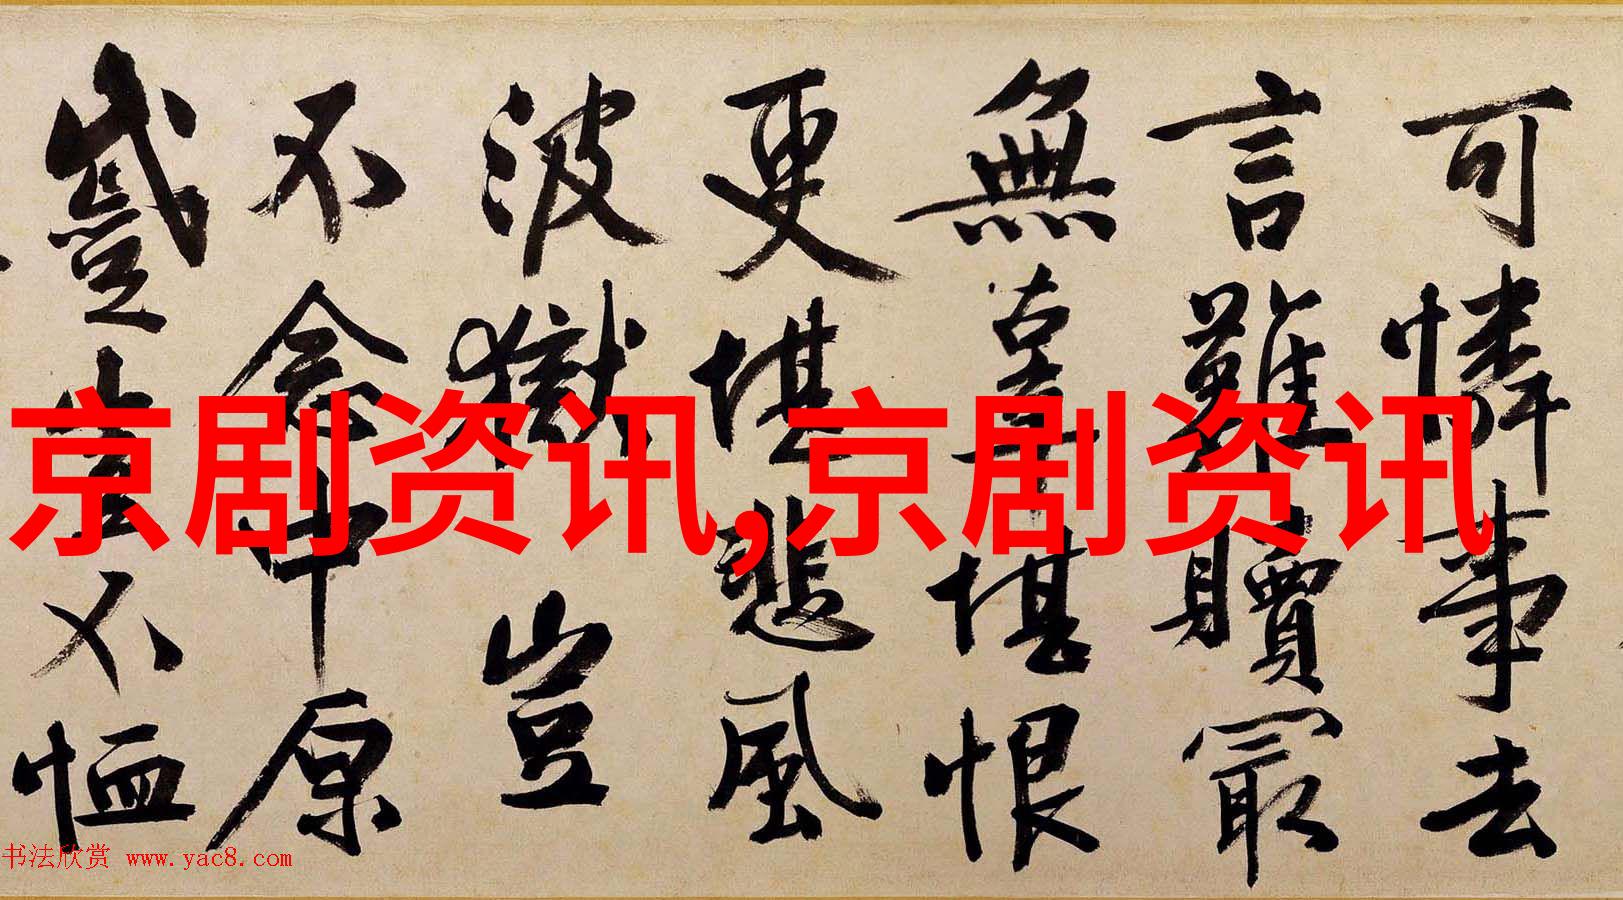 可憐事去
言難贖冣
無辜堪恨
更堪悲風
波獄豈
不念中原
蹙豈不恤
京剧资讯,京剧资讯
书法欣赏 www.yac8.com